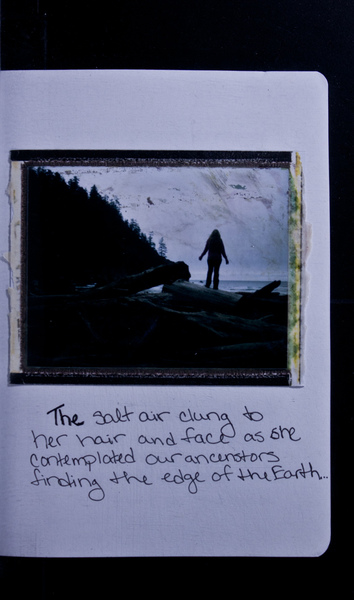 The salt air clung to
her hair and face as she
contemplated our ancenstors
finding the edge of the Earth...